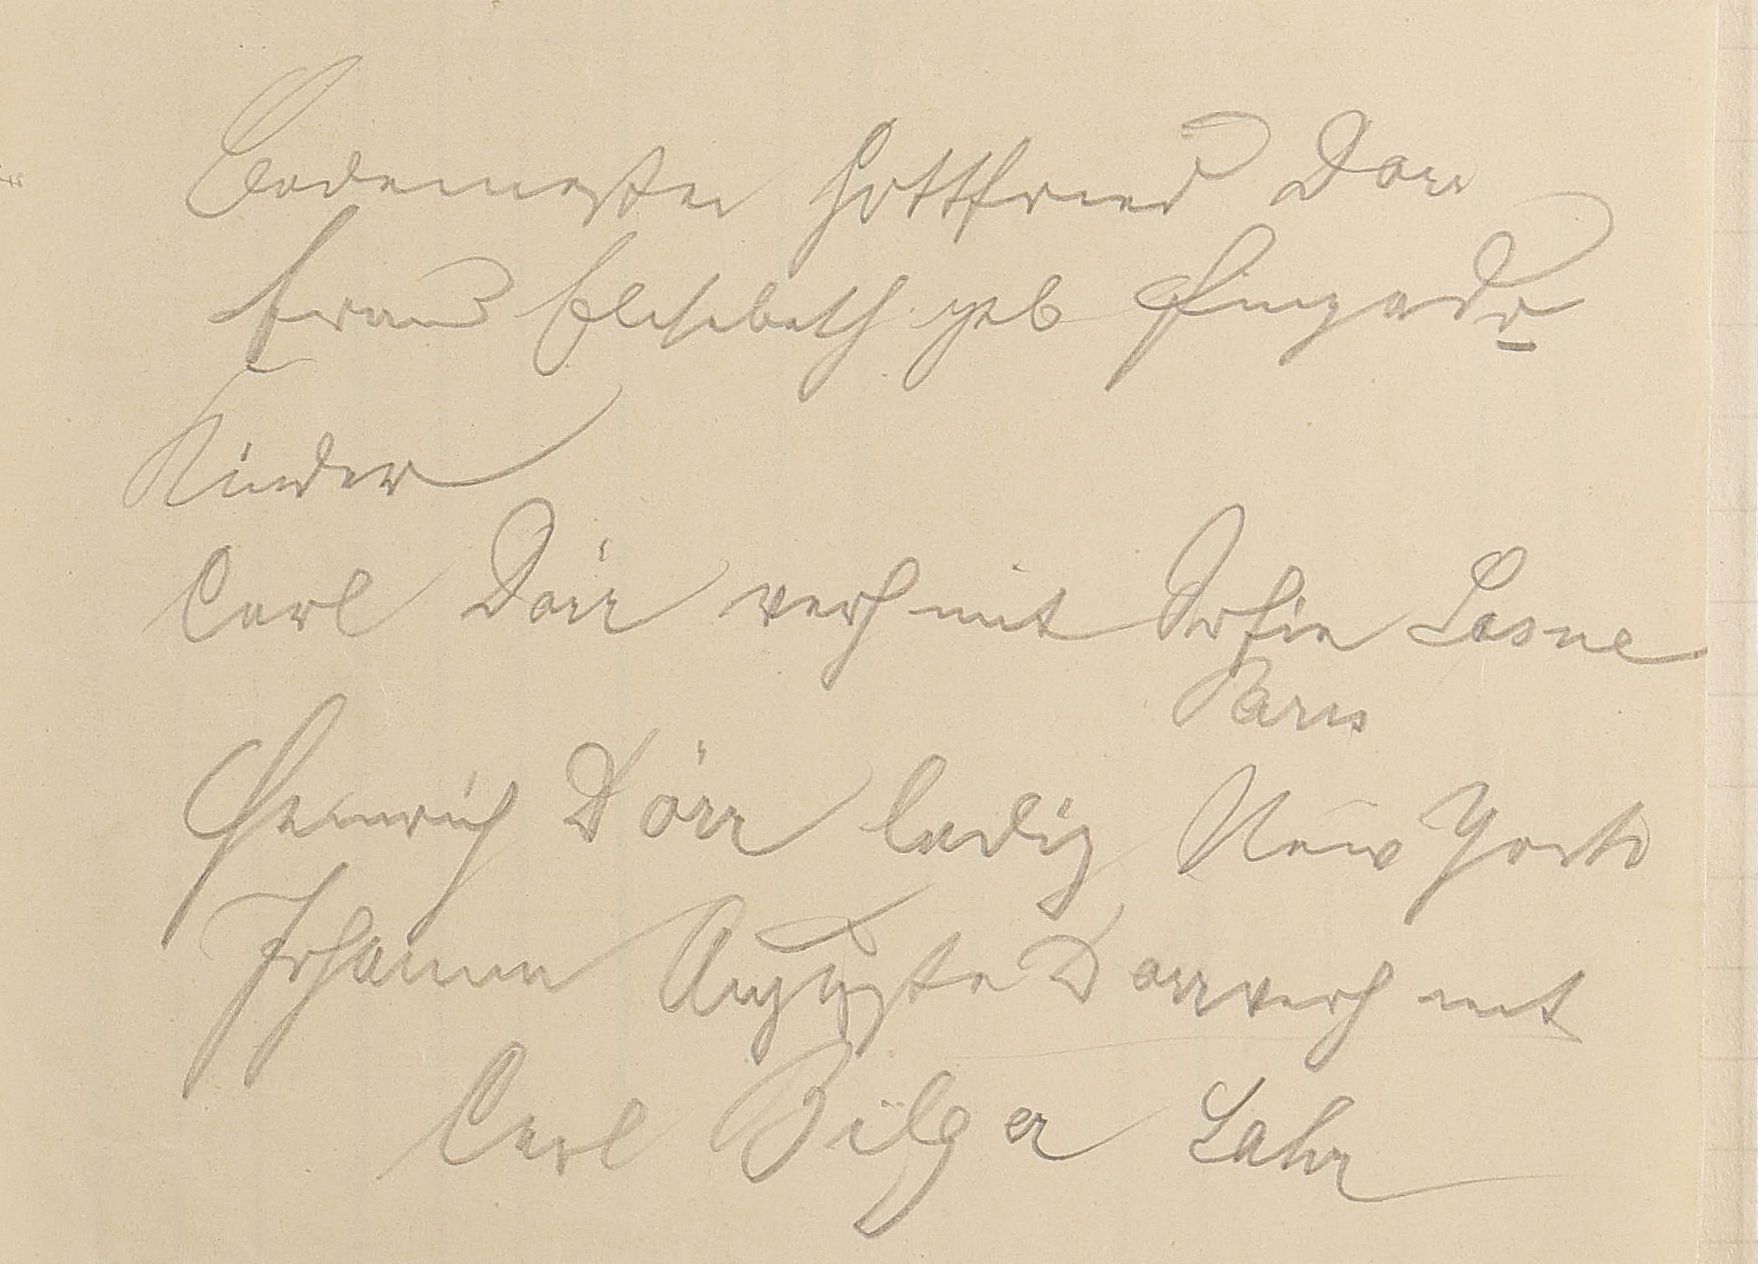 Bademeister Gottfried Dörr
Frau Elisabeth geb
Kinder
Carl Dörr verh mit Sofie Lasne
Paris
Heinrich Dörr ledig New York
Johanna Auguste Dörr verh mit
Carl Bilger Lahr